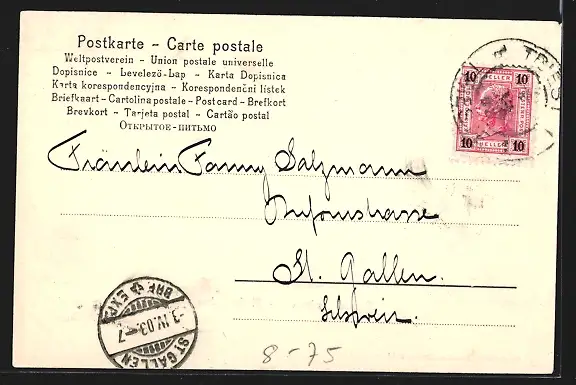 Postkarte – Carte postale
Weltpostverein – Union postale universelle
Dopisnice – Levelező-Lap – Karta Dopisnica
Karta korespondencyjna – Korespondenční lístek
Briefkaart – Cartolina postale – Postcard – Brefkort
Brevkort – Tarjeta postal – Cartão postal
Открытое-письмо
10 10
HELLER
10 HELLER 10
TRIEST
Fräulein Fanny Salzmann
St. Gallen.
Schweiz.
BRF EXP.
-3.IV.03.-7
ST GALLEN
8-75